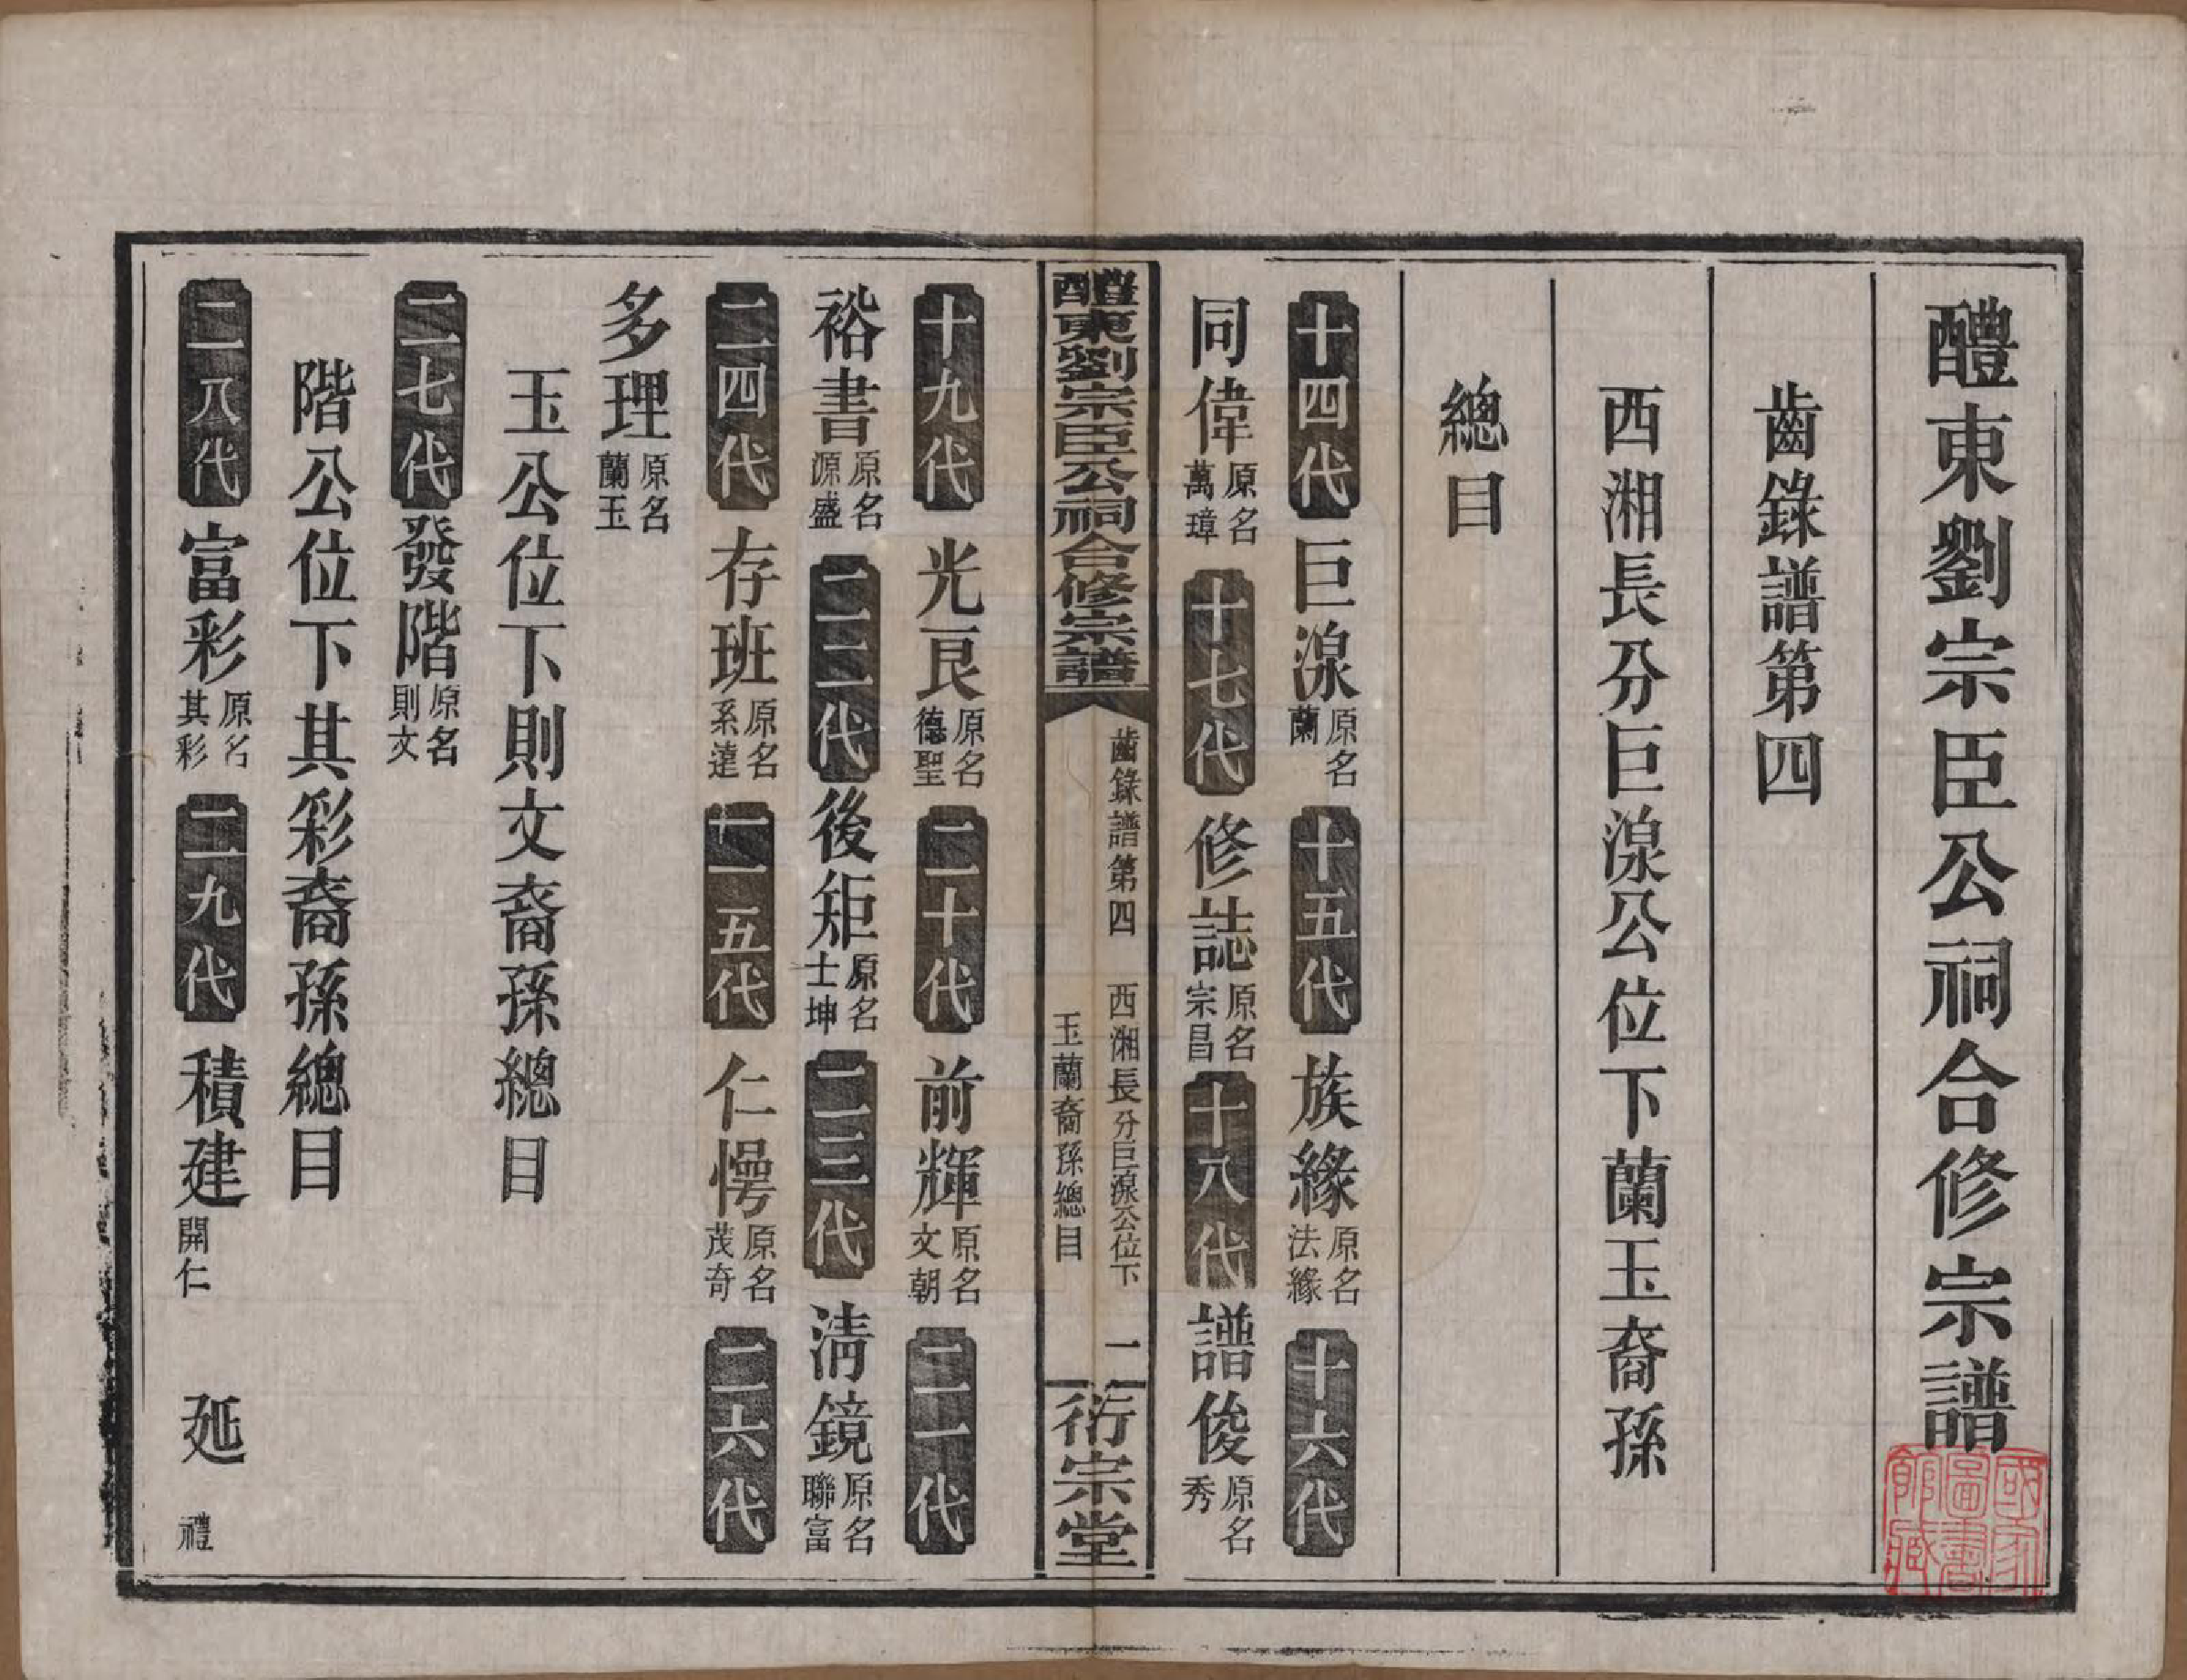 醴東劉宗臣公祠合修宗譜
齒錄譜第四
西湘長分巨湶公位下蘭玉裔孫
總目
十四代 巨湶 原名蘭 十五代 族緣 原名法緣 十六代
同偉 原名萬璋 十七代 修誌 原名宗昌 十八代 譜俊 原名秀
醴東劉宗臣公祠合修宗譜 齒錄譜第四 西湘長分巨湶公位下玉蘭裔孫總目 一 衍宗堂
十九代 光艮 原名德聖 二十代 前輝 原名文朝 二一代
裕書 原名源盛 二二代 後矩 原名士坤 二三代 淸鏡 原名聯富
二四代 存班 原名系達 二五代 仁愕 原名茂奇 二六代
多理 原名蘭玉
玉公位下則文裔孫總目
二七代 發階 原名則文
階公位下其彩裔孫總目
二八代 富彩 原名其彩 二九代 積建 開仁 延 禮
國家圖書館藏